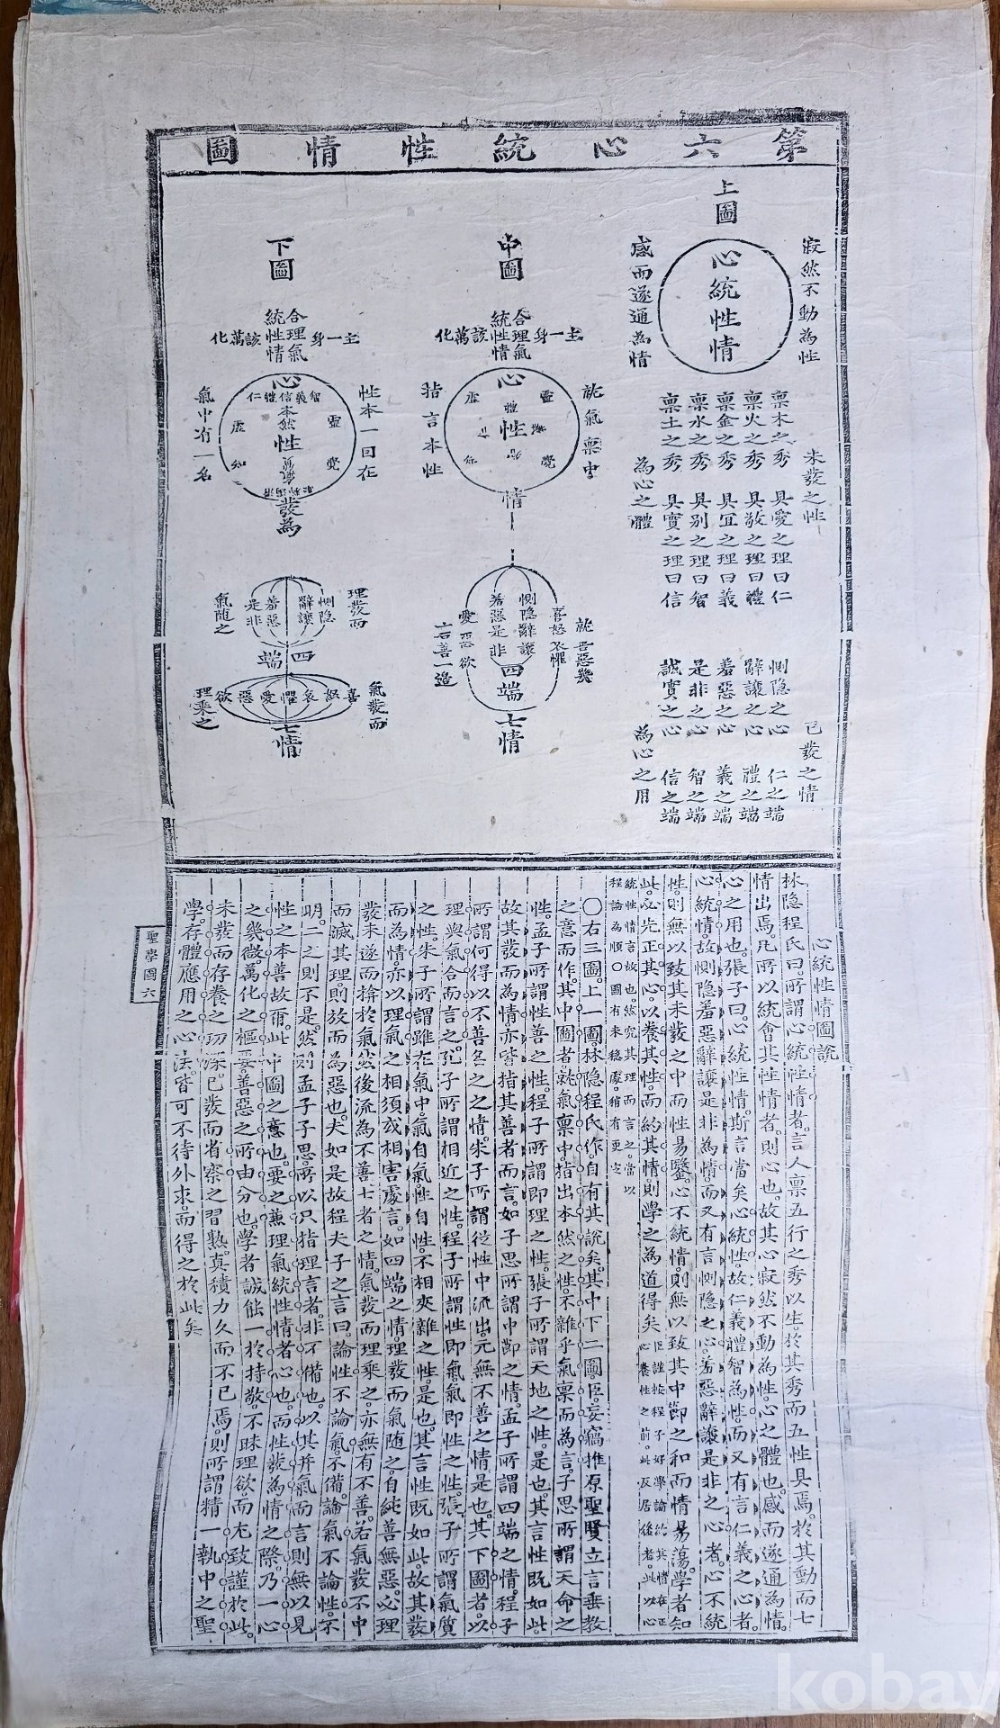 第六心統性情圖
上圖
寂然不動為性
心統性情
感而遂通為情
未發之性
稟木之秀 具愛之理曰仁
稟火之秀 具敬之理曰禮
稟金之秀 具宜之理曰義
稟水之秀 具別之理曰智
稟土之秀 具實之理曰信
為心之體
已發之情
惻隱之心 仁之端
辭讓之心 禮之端
羞惡之心 義之端
是非之心 智之端
誠實之心 信之端
為心之用
中圖
合理氣
統性情
主一身
該萬化
心
就氣稟中
指言本性
虛 靈
禮
性
知 覺
情
就善惡幾
言善一邊
喜怒哀懼
惻隱辭讓
羞惡是非
愛惡欲
四端
七情
下圖
合理氣
統性情
主一身
該萬化
心
性本一因在
氣中有二名
仁禮信義智
本然
性
氣質
虛 靈
知 覺
清濁粹駁
發為
理發而
氣隨之
惻隱
辭讓
羞惡
是非
四端
氣發而
理乘之
喜怒哀懼愛惡欲
七情
心統性情圖說
林隱程氏曰。所謂心統性情者。言人稟五行之秀以生。於其秀而五性具焉。於其動而七
情出焉。凡所以統會其性情者。則心也。故其心寂然不動為性。心之體也。感而遂通為情。
心之用也。張子曰。心統性情。斯言當矣。心統性。故仁義禮智為性。而又有言仁義之心者。
心統情。故惻隱羞惡辭讓是非為情。而又有言惻隱之心。羞惡辭讓是非之心者。心不統
性。則無以致其未發之中。而性易鑿。心不統情。則無以致其中節之和。而情易蕩。學者知
此。必先正其心。以養其性。而約其情。則學之為道得矣
臣謹按程子好學論。約其情在正
心養性之前。此反居後者。此以心
統性情言故也。然究其理而言之。當以
程論為順○圖有未穩處稍有更定
○右三圖。上一圖。林隱程氏作。自有其說矣。其中下二圖。臣妄竊推原聖賢立言垂教
之意而作。其中圖者。就氣稟中指出本然之性。不雜乎氣稟而為言。子思所謂天命之
性。孟子所謂性善之性。程子所謂即理之性。張子所謂天地之性。是也。其言性既如此。
故其發而為情。亦皆指其善者而言。如子思所謂中節之情。孟子所謂四端之情。程子
所謂何得以不善名之之情。朱子所謂從性中流出。元無不善之情是也。其下圖者。以
理與氣合而言之。孔子所謂相近之性。程子所謂性即氣氣即性之性。張子所謂氣質
之性。朱子所謂雖在氣中。氣自氣性自性。不相夾雜之性。是也。其言性既如此。故其發
而為情。亦以理氣之相須或相害處言。如四端之情。理發而氣隨之。自純善無惡。必理
發未遂。而揜於氣。然後流為不善。七者之情。氣發而理乘之。亦無有不善。若氣發不中
而滅其理。則放而為惡也。夫如是。故程夫子之言曰。論性不論氣不備。論氣不論性。不
明。二之則不是。然則孟子子思所以只指理言者。非不備也。以其并氣而言則無以見
性之本善故爾。此中圖之意也。要之。兼理氣統性情者。心也。而性發為情之際。乃一心
之幾微。萬化之樞要。善惡之所由分也。學者誠能一於持敬。不昧理欲。而尤致謹於此。
未發而存養之功深。已發而省察之習熟。真積力久而不已焉。則所謂精一執中之聖
學。存體應用之心法。皆可不待外求。而得之於此矣
聖學圖六
kobay